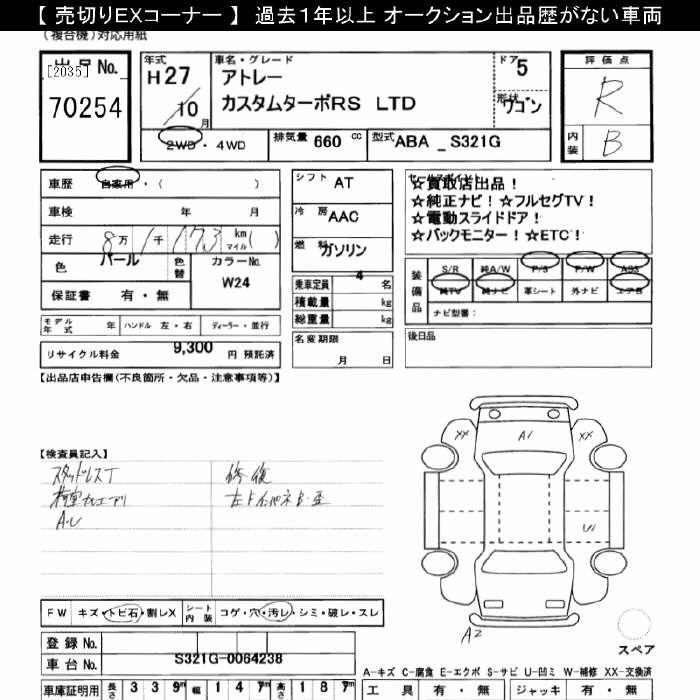 【 売切りEXコーナー 】 過去1年以上 オークション出品歴がない車両
(複合機)対応用紙
出品 No.
[2035]
70254
年式
H27
10月
車名・グレード
アトレー
カスタムターボRS LTD
ドア
5
形状
ワゴン
2WD・4WD
排気量 660 cc
型式 ABA _ S321G
評価点
R
内装
B
車歴 自家用・( )
車検 年 月
走行 8万 1千 173 km マイル ( )
色 パール
色替
カラーNo.
W24
保証書 有・無
シフト AT
冷房 AAC
燃料 ガソリン
乗車定員 4 名
積載量 kg
総重量 kg
セールスポイント
☆買取店出品!
☆純正ナビ!☆フルセグTV!
☆電動スライドドア!
☆バックモニター!☆ETC!
装備品
S/R 純A/W P/S P/W ABS
純TV 純ナビ 革シート 外ナビ エアB
ナビ型番:
モデル年式 年 ハンドル 左・右 ディーラー・並行
リサイクル料金 9,300 円 預託済
名変期限
月 日
後日品
【出品店申告欄(不良箇所・欠品・注意事項等)】
【検査員記入】
スタッドレスT
A・U
修復
XX A1 XX
U1
A2
スペア
FW キズ・トビ石・割レX
シート内装 コゲ・穴・汚レ・シミ・破レ・スレ
登録 No.
車台 No. S321G-0064238
A-キズ C-腐食 E-エクボ S-サビ U-凹ミ W-補修 XX-交換済
車庫証明用 長さ 3 3 9m 幅 1 4 7m 高さ 1 8 7m
工具 有・無 ジャッキ 有・無